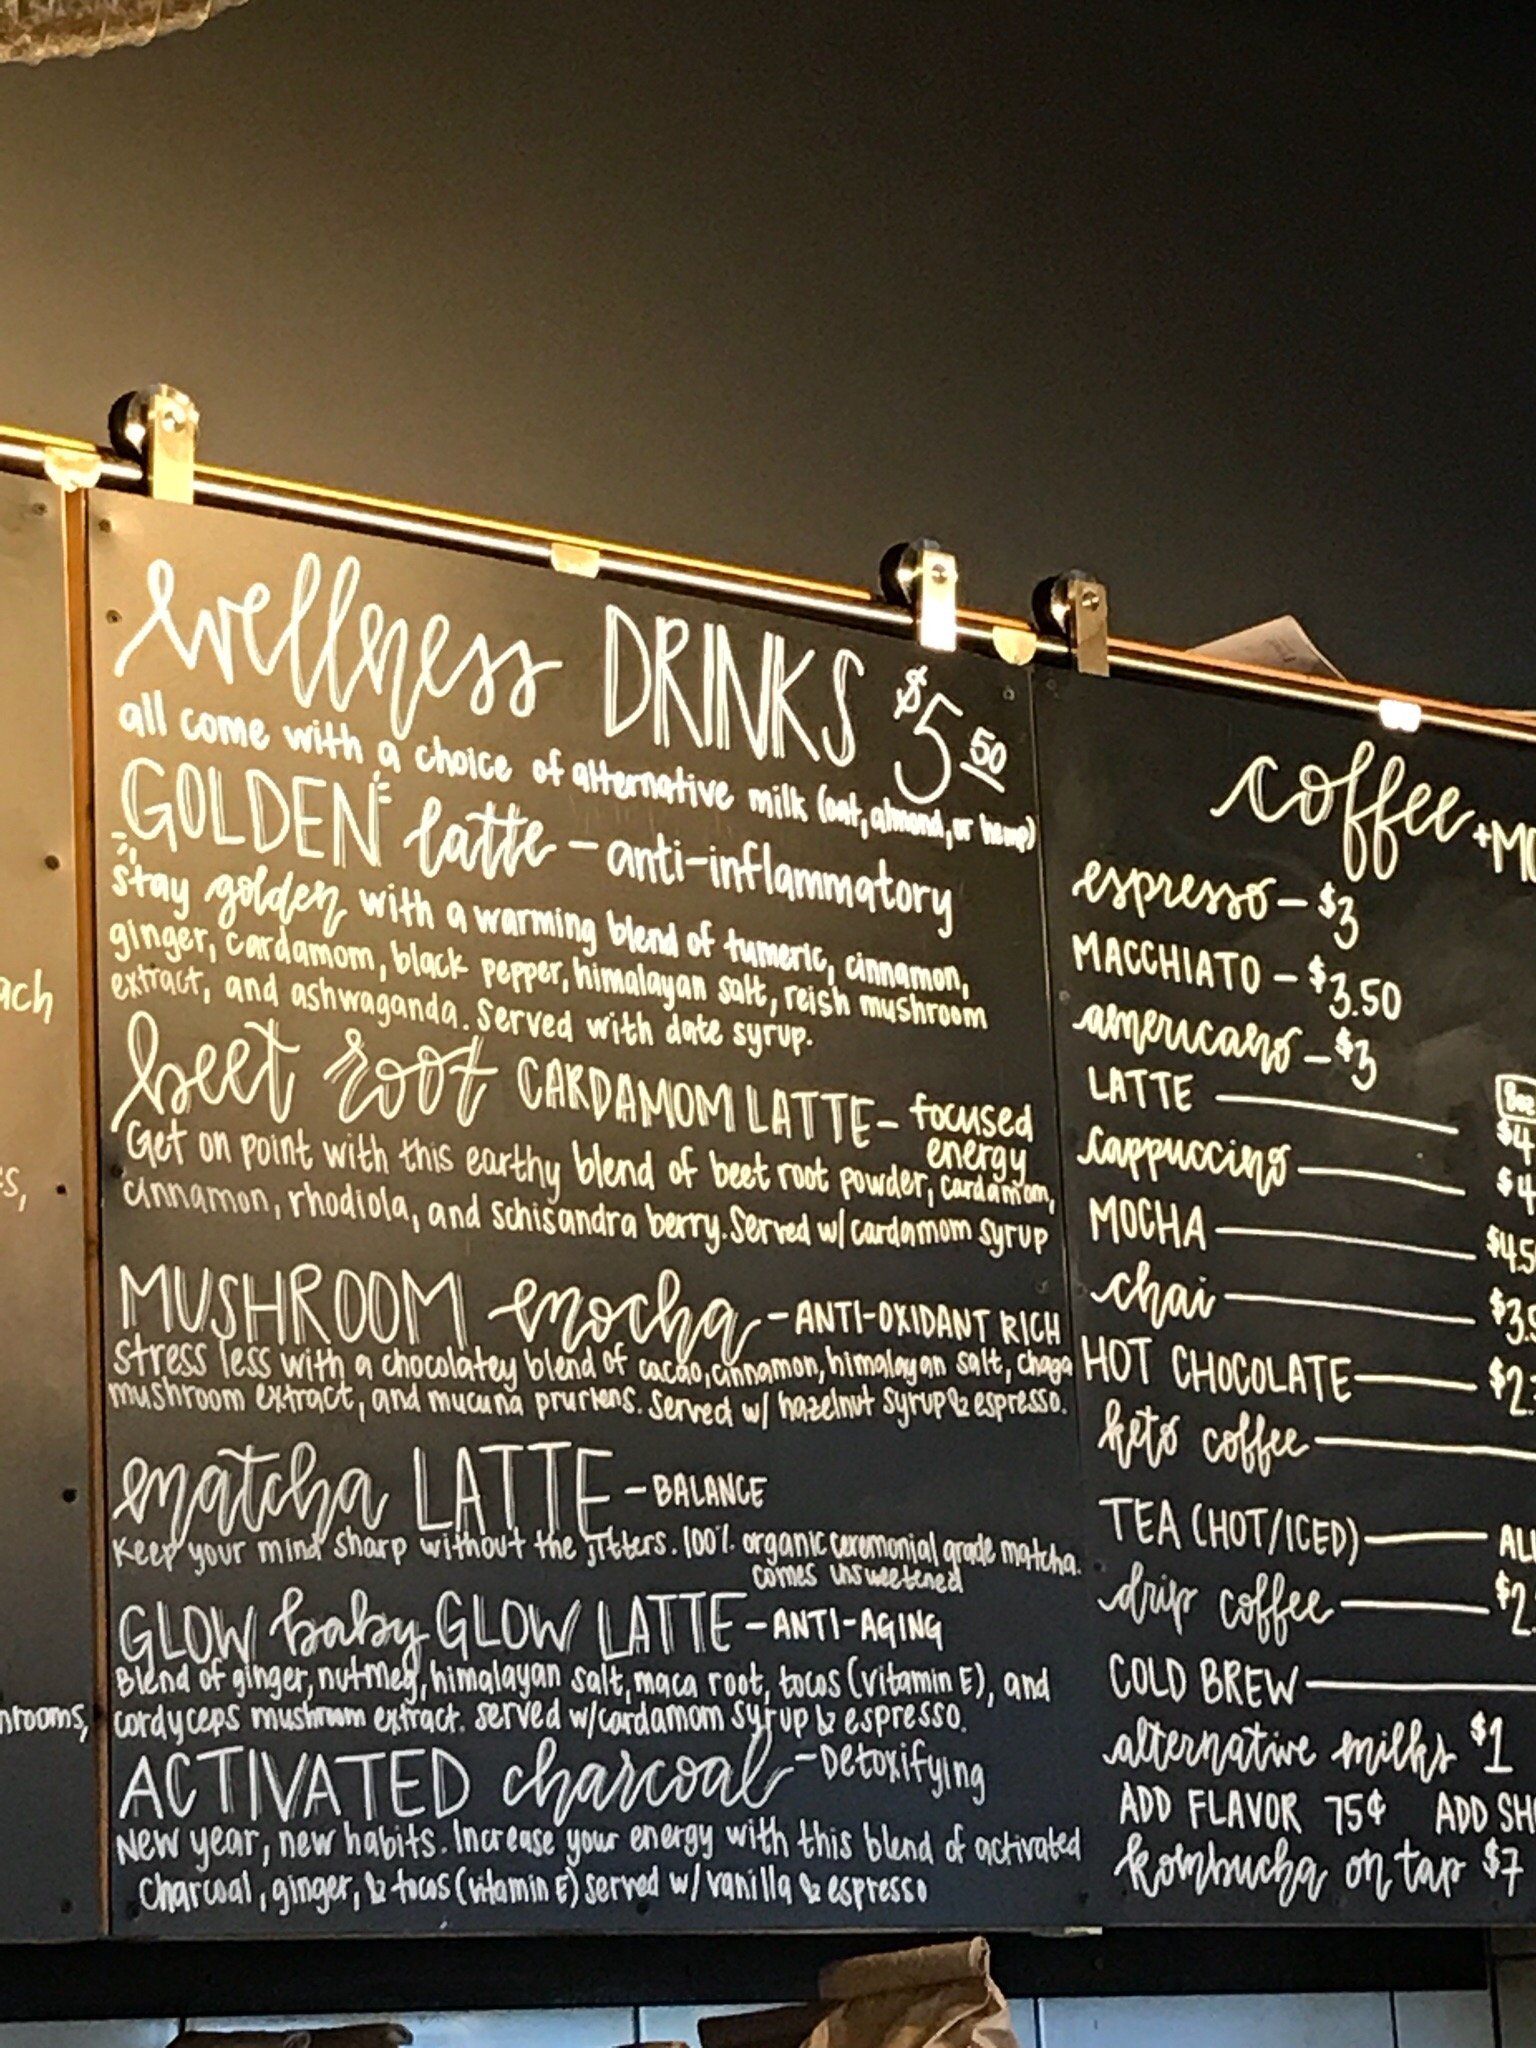 wellness DRINKS $5 50
all come with a choice of alternative milk (oat, almond, or hemp)
GOLDEN latte - anti-inflammatory
stay golden with a warming blend of tumeric, cinnamon,
ginger, cardamom, black pepper, himalayan salt, reish mushroom
extract, and ashwaganda. Served with date syrup.
beet root CARDAMOM LATTE - focused
energy
Get on point with this earthy blend of beet root powder, cardamom,
cinnamon, rhodiola, and schisandra berry. Served w/ cardamom syrup
MUSHROOM mocha - ANTI-OXIDANT RICH
Stress less with a chocolatey blend of cacao, cinnamon, himalayan salt, chaga
mushroom extract, and mucuna pruriens. Served w/ hazelnut syrup & espresso.
matcha LATTE - BALANCE
Keep your mind sharp without the jitters. 100% organic ceremonial grade matcha.
comes unsweetened
GLOW baby GLOW LATTE - ANTI-AGING
Blend of ginger, nutmeg, himalayan salt, maca root, tocos (vitamin E), and
cordyceps mushroom extract. served w/cardamom syrup & espresso.
ACTIVATED charcoal - Detoxifying
New year, new habits. Increase your energy with this blend of activated
charcoal, ginger, & tocos (vitamin E) served w/ vanilla & espresso
coffee +MO
espresso - $3
MACCHIATO - $3.50
americano - $3
8oz
LATTE $4
cappuccino $4
MOCHA $4.5
chai $3.5
HOT CHOCOLATE $2.
keto coffee
TEA (HOT/ICED) ALL
drip coffee $2.
COLD BREW
alternative milks $1
ADD FLAVOR 75¢ ADD SH
kombucha on tap $7
ach
s,
hrooms,